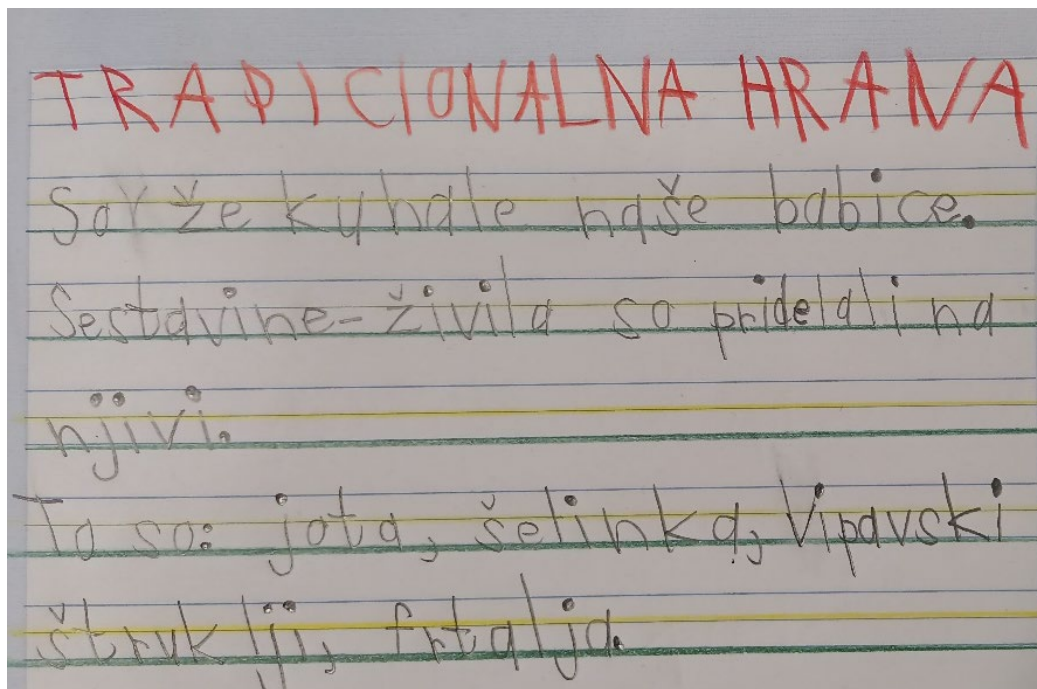 TRADICIONALNA HRANA
So že kuhale naše babice.
Sestavine-živila so pridelali na
njivi.
To so: jota, šelinka, Vipavski
štruklji, frtalja.